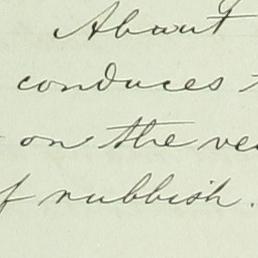 About
conduces
on the
of rubbish.